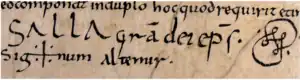 componat induplo hocquodrequirit
SALLA grā dei eps̄.
Sig+num altemir.